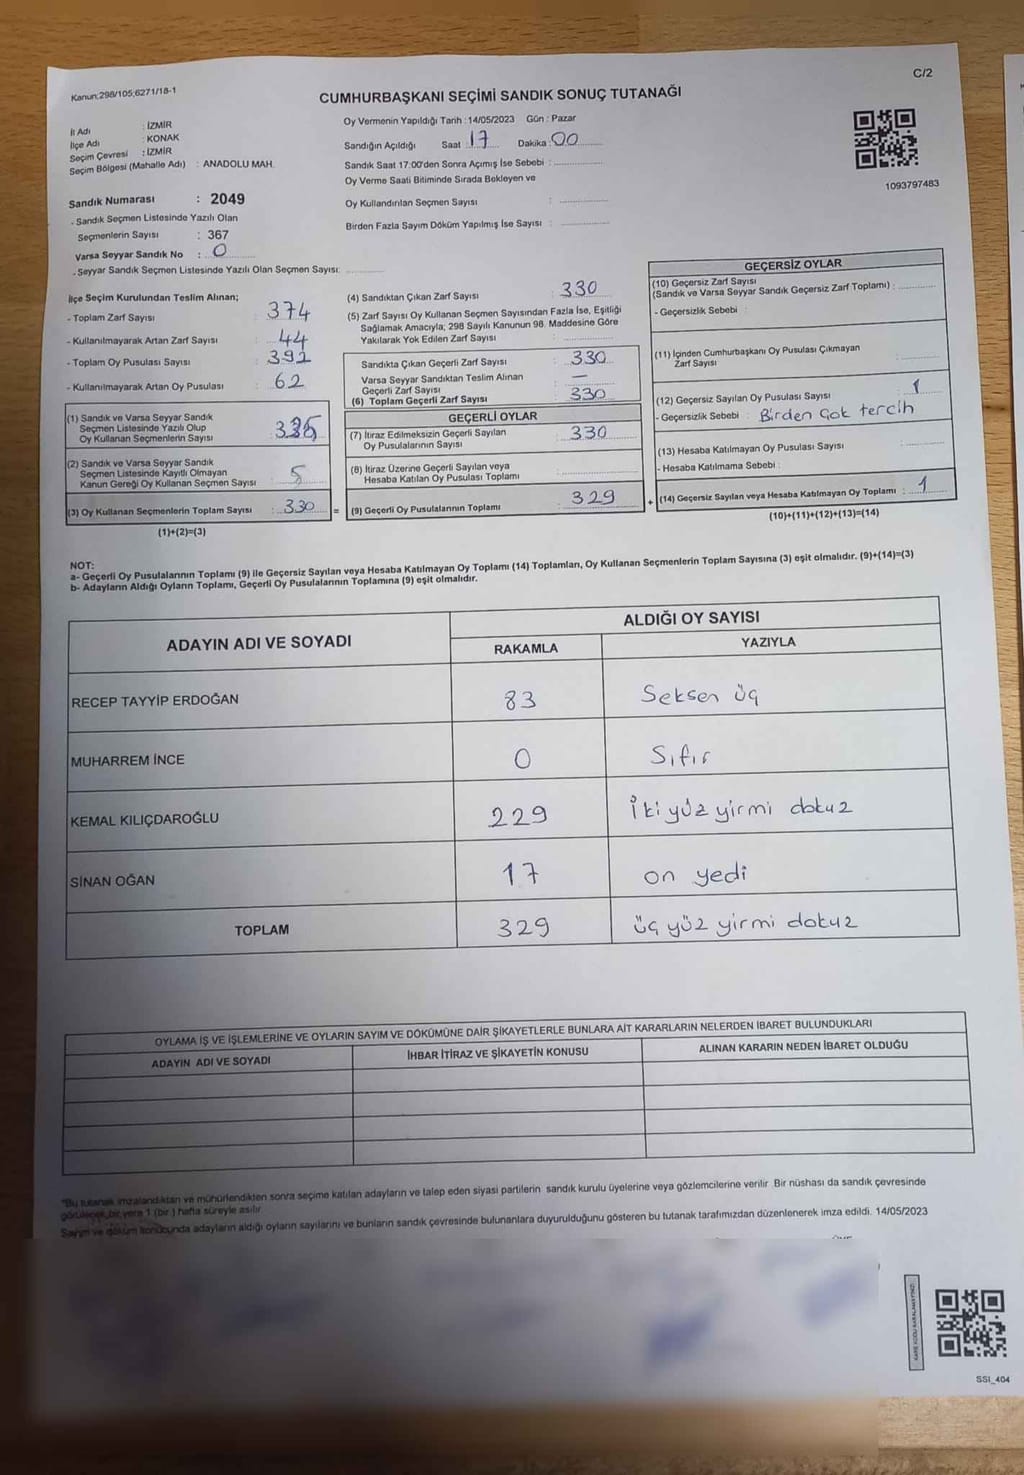 C/2
Kanun:298/105;6271/18-1
CUMHURBAŞKANI SEÇİMİ SANDIK SONUÇ TUTANAĞI
İl Adı : İZMİR
İlçe Adı : KONAK
Seçim Çevresi : İZMİR
Seçim Bölgesi (Mahalle Adı) : ANADOLU MAH.
Sandık Numarası : 2049
- Sandık Seçmen Listesinde Yazılı Olan
Seçmenlerin Sayısı : 367
Varsa Seyyar Sandık No : 0
- Seyyar Sandık Seçmen Listesinde Yazılı Olan Seçmen Sayısı:
Oy Vermenin Yapıldığı Tarih : 14/05/2023 Gün : Pazar
Sandığın Açıldığı Saat : 17 Dakika : 00
Sandık Saat 17:00'den Sonra Açımış İse Sebebi :
Oy Verme Saati Bitiminde Sırada Bekleyen ve
Oy Kullandırılan Seçmen Sayısı :
Birden Fazla Sayım Döküm Yapılmış İse Sayısı :
1093797483
İlçe Seçim Kurulundan Teslim Alınan;
- Toplam Zarf Sayısı : 374
- Kullanılmayarak Artan Zarf Sayısı : 44
- Toplam Oy Pusulası Sayısı : 392
- Kullanılmayarak Artan Oy Pusulası : 62
(1) Sandık ve Varsa Seyyar Sandık
Seçmen Listesinde Yazılı Olup
Oy Kullanan Seçmenlerin Sayısı :
(2) Sandık ve Varsa Seyyar Sandık
Seçmen Listesinde Kayıtlı Olmayan
Kanun Gereği Oy Kullanan Seçmen Sayısı : 5
(3) Oy Kullanan Seçmenlerin Toplam Sayısı : 330 =
(1)+(2)=(3)
(4) Sandıktan Çıkan Zarf Sayısı : 330
(5) Zarf Sayısı Oy Kullanan Seçmen Sayısından Fazla İse, Eşitliği
Sağlamak Amacıyla; 298 Sayılı Kanunun 98. Maddesine Göre
Yakılarak Yok Edilen Zarf Sayısı :
Sandıkta Çıkan Geçerli Zarf Sayısı : 330
Varsa Seyyar Sandıktan Teslim Alınan
Geçerli Zarf Sayısı : —
(6) Toplam Geçerli Zarf Sayısı : 330
GEÇERLİ OYLAR
(7) İtiraz Edilmeksizin Geçerli Sayılan
Oy Pusulalarının Sayısı : 330
(8) İtiraz Üzerine Geçerli Sayılan veya
Hesaba Katılan Oy Pusulası Toplamı :
(9) Geçerli Oy Pusulalarının Toplamı : 329 +
GEÇERSİZ OYLAR
(10) Geçersiz Zarf Sayısı
(Sandık ve Varsa Seyyar Sandık Geçersiz Zarf Toplamı) :
- Geçersizlik Sebebi :
(11) İçinden Cumhurbaşkanı Oy Pusulası Çıkmayan
Zarf Sayısı :
(12) Geçersiz Sayılan Oy Pusulası Sayısı : 1
- Geçersizlik Sebebi : Birden Çok tercih
(13) Hesaba Katılmayan Oy Pusulası Sayısı :
- Hesaba Katılmama Sebebi :
(14) Geçersiz Sayılan veya Hesaba Katılmayan Oy Toplamı : 1
(10)+(11)+(12)+(13)=(14)
NOT:
a- Geçerli Oy Pusulalarının Toplamı (9) ile Geçersiz Sayılan veya Hesaba Katılmayan Oy Toplamı (14) Toplamları, Oy Kullanan Seçmenlerin Toplam Sayısına (3) eşit olmalıdır. (9)+(14)=(3)
b- Adayların Aldığı Oyların Toplamı, Geçerli Oy Pusulalarının Toplamına (9) eşit olmalıdır.
ADAYIN ADI VE SOYADI ALDIĞI OY SAYISI
RAKAMLA YAZIYLA
RECEP TAYYİP ERDOĞAN 83 Seksen üç
MUHARREM İNCE 0 Sıfır
KEMAL KILIÇDAROĞLU 229 İki yüz yirmi dokuz
SİNAN OĞAN 17 on yedi
TOPLAM 329 üç yüz yirmi dokuz
OYLAMA İŞ VE İŞLEMLERİNE VE OYLARIN SAYIM VE DÖKÜMÜNE DAİR ŞİKAYETLERLE BUNLARA AİT KARARLARIN NELERDEN İBARET BULUNDUKLARI
ADAYIN ADI VE SOYADI İHBAR İTİRAZ VE ŞİKAYETİN KONUSU ALINAN KARARIN NEDEN İBARET OLDUĞU
*Bu tutanak imzalandıktan ve mühürlendikten sonra seçime katılan adayların ve talep eden siyasi partilerin sandık kurulu üyelerine veya gözlemcilerine verilir. Bir nüshası da sandık çevresinde
görülecek bir yere 1 (bir ) hafta süreyle asılır.
Sayım ve döküm konucunda adayların aldığı oyların sayılarını ve bunların sandık çevresinde bulunanlara duyurulduğunu gösteren bu tutanak tarafımızdan düzenlenerek imza edildi. 14/05/2023
SSI_404